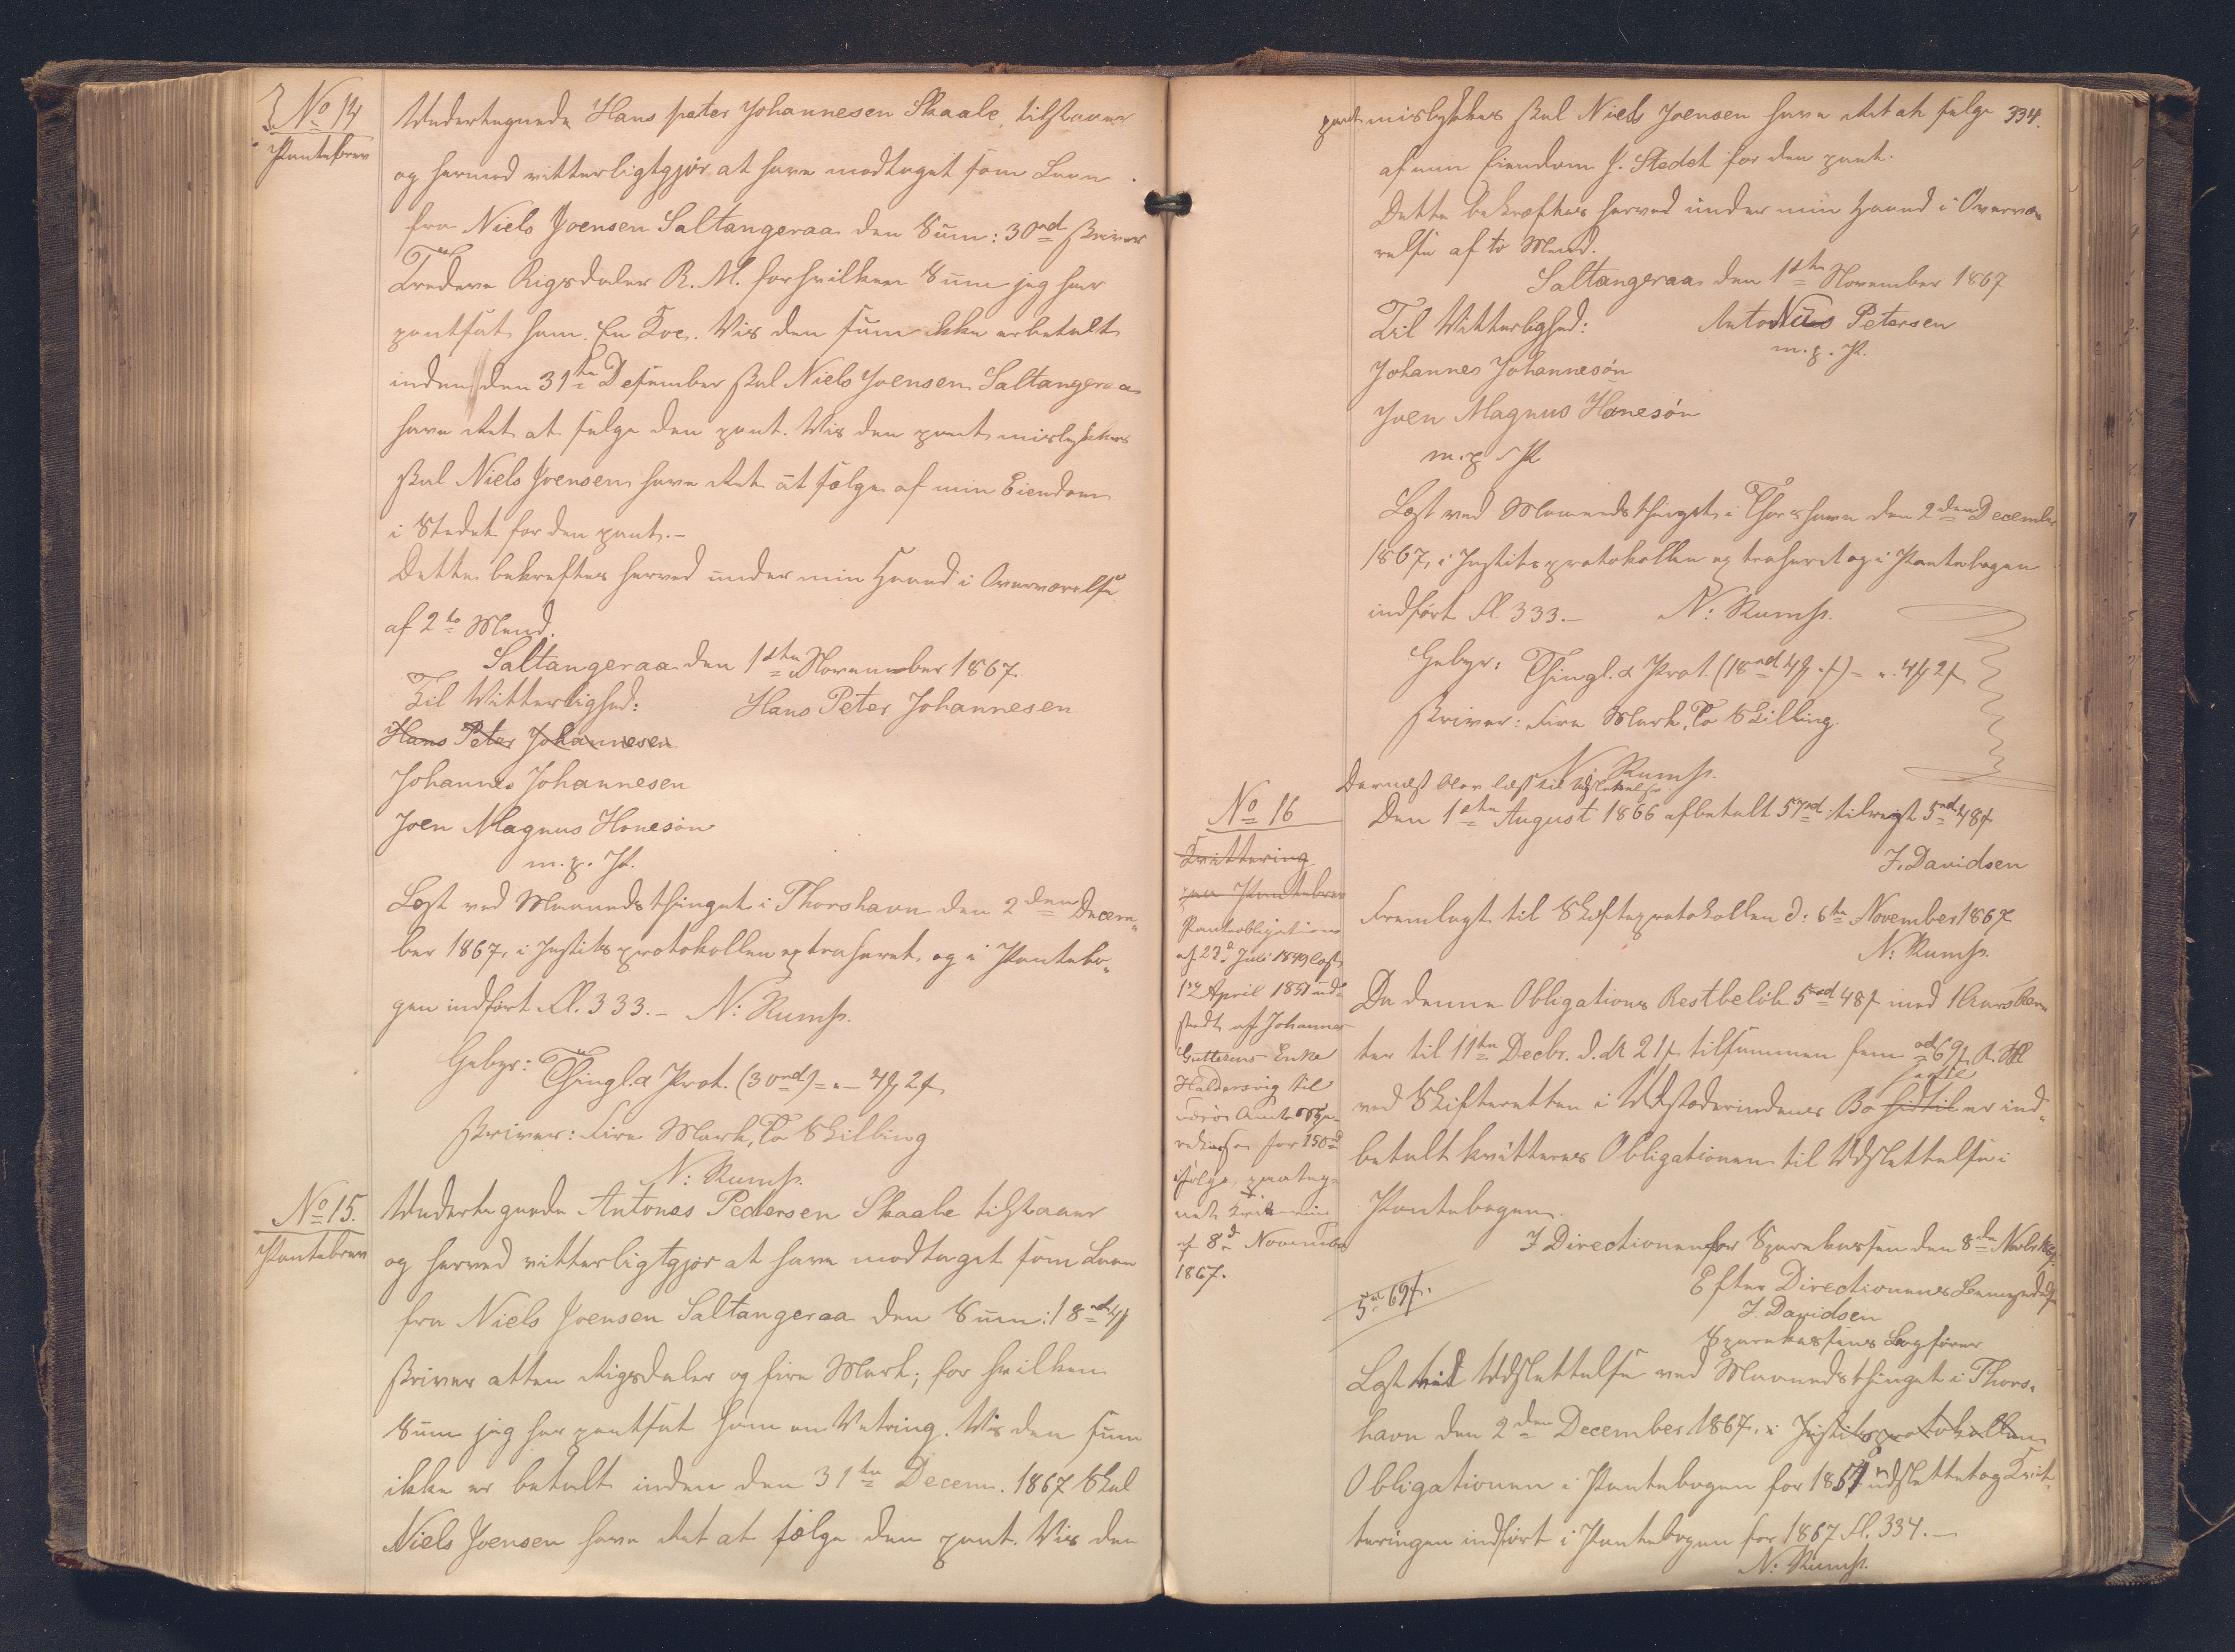 No 14
Pantebrev
Undertegnede Hans peter Johannesen Skaale, tilstaaer
og hermed vitterligtgjør at have modtaget som Laan
fra Niels Joensen Saltangeraa den Sum: 30rd skriver
Tredeve Rigsdaler R. M. for hvilken Sum jeg har
pantsat ham. En Koe. Vis den sum ikke er betalt
inden den 31te Desember skal Niels Joensen Saltangeraa
have Ret at selge den pant. Vis den pant mislykkes
skal Niels Joensen have Ret at sælge af min Eiendom
i Stedet for den pant.-
Dette bekreftes herved under min Haand i Overværelse
af 2to Mend.
Saltangeraa den 1ste November 1867.
Til Vitterlighed:
Hans Peter Johannesen
Hans Peter Johannesen
Johannes Johannesen
Joen Magnus Honesøn
m. p. P.
Læst ved Maanedsthinget i Thorshavn den 2den Decem„
ber 1867, i Justitsprotokollen extraheret og i Pantebo„
gen indført Fl. 333.- N: Rump.
Gebyr: Thingl. & Prot. (30rd) = „ - 4 2
skriver: Fire Mark, To Skilling
N: Rump.
No 15.
Pantebrev
Undertegnede Antonas Pedersen Skaale tilstaaer
og herved vitterligtgjør at have modtaget som Laan
fra Niels Joensen Saltangeraa den Sum: 18rd 4
skriver atten Rigsdaler og fire Mark; for hvilken
Sum jeg har pantsat ham en Vetring. Vis den sum
ikke er betalt inden den 31te Decem. 1867 Skal
Niels Joensen have Ret at sælge den pant. Vis den
334.
pant mislykkes skal Niels Joensen have Ret at selge
af min Eiendom J. Stedet for den pant.
Dette bekræftes herved under min Haand i Overvæ„
relse af to Mend.
Saltangeraa den 1ste November 1867
Til Vitterlighed:
Antonius Petersen
m. p. P.
Johannes Johannesøn
Joen Magnus Hanesøn
m. p. P
Læst ved Maanedsthinget i Thorshavn den 2den December
1867, i Justitsprotokollen extraheret og i Pantebogen
indført Fl. 333.- N: Rump.
Gebyr: Thingl. & Prot. (18rd 4 „ ) = „ 4 2
skriver: Fire Mark, To Skilling.
N: Rump.
No 16
Kvittering
paa Pantebrev
Pantobligation
af 23d Juli 1849 læst
1ste April 1851 ud„
stedt af Johannes
Guttesens Enke
Haldersvig til
Færøe Amts Spa„
rekasse for 150rd
ifølge, paateg„
net Kvittering
af 8d November
1867.
Dernæst blev læst til Udslettelse
Den 1ste August 1866 afbetalt 57rd, tilrest 5rd 48
J. Davidsen
Fremlagt til Skifteprotokollen d: 6te November 1867
N: Rump.
Da denne Obligations Restbeløb 5rd 48 med 1 Aars Ren„
ter til 11te Decbr. d. A 21 tilsammen fem rd 69 R. M
ved Skifteretten i Udstæderindens Bo hidtil er ind„
betalt kvitteres Obligationen til Udslettelse i
Pantebogen.
J Directionen for Sparekassen den 8de Novbr. 1867.
5rd 69.
Efter Directionens Bemyndigelse
J. Davidsen
Sparekassens Bogfører
Læst til Udslettelse ved Maanedsthinget i Thors„
havn den 2den December 1867, i Justitsprotokollen
Obligationen i Pantebogen for 1851 udslettet og Kvit„
teringen indført i Pantebogen for 1867 Fl. 334.-
N: Rump.